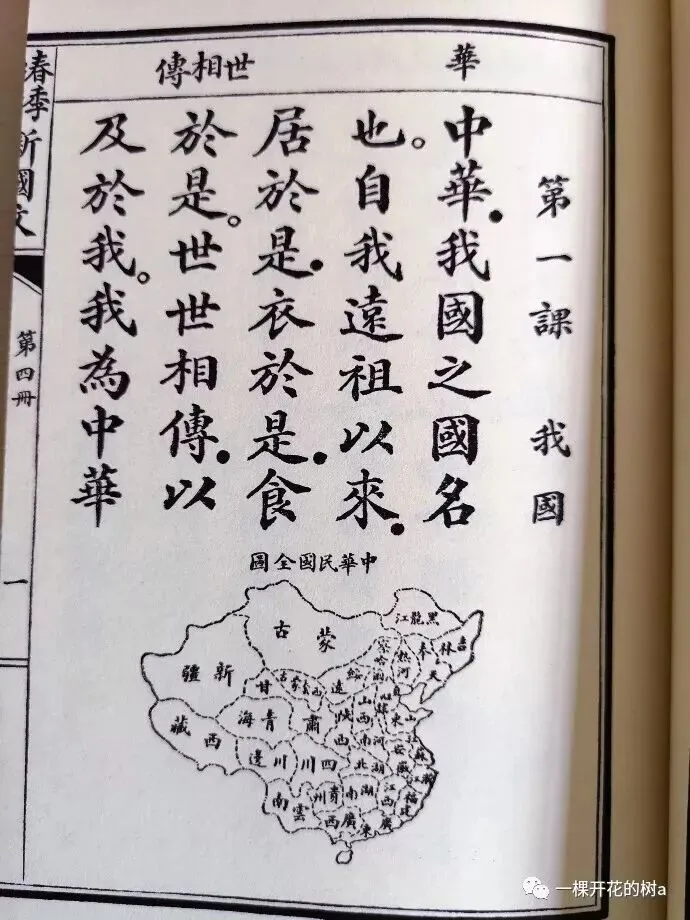 華
世相傳
第一課 我國
中華●我國之國名
也。自我遠祖以來●
居於是●衣於是●食
於是。世世相傳●以
及於我。我為中華
春季新國文
第四冊
一
中華民國全圖
黑龍江
吉林
奉天
蒙古
新疆
熱河
察哈爾
綏遠
甘肅
青海
西藏
山西
陝西
山東
河南
川邊
四川
湖北
安徽
江蘇
浙江
雲南
貴州
湖南
江西
福建
廣西
廣東
一棵开花的树a